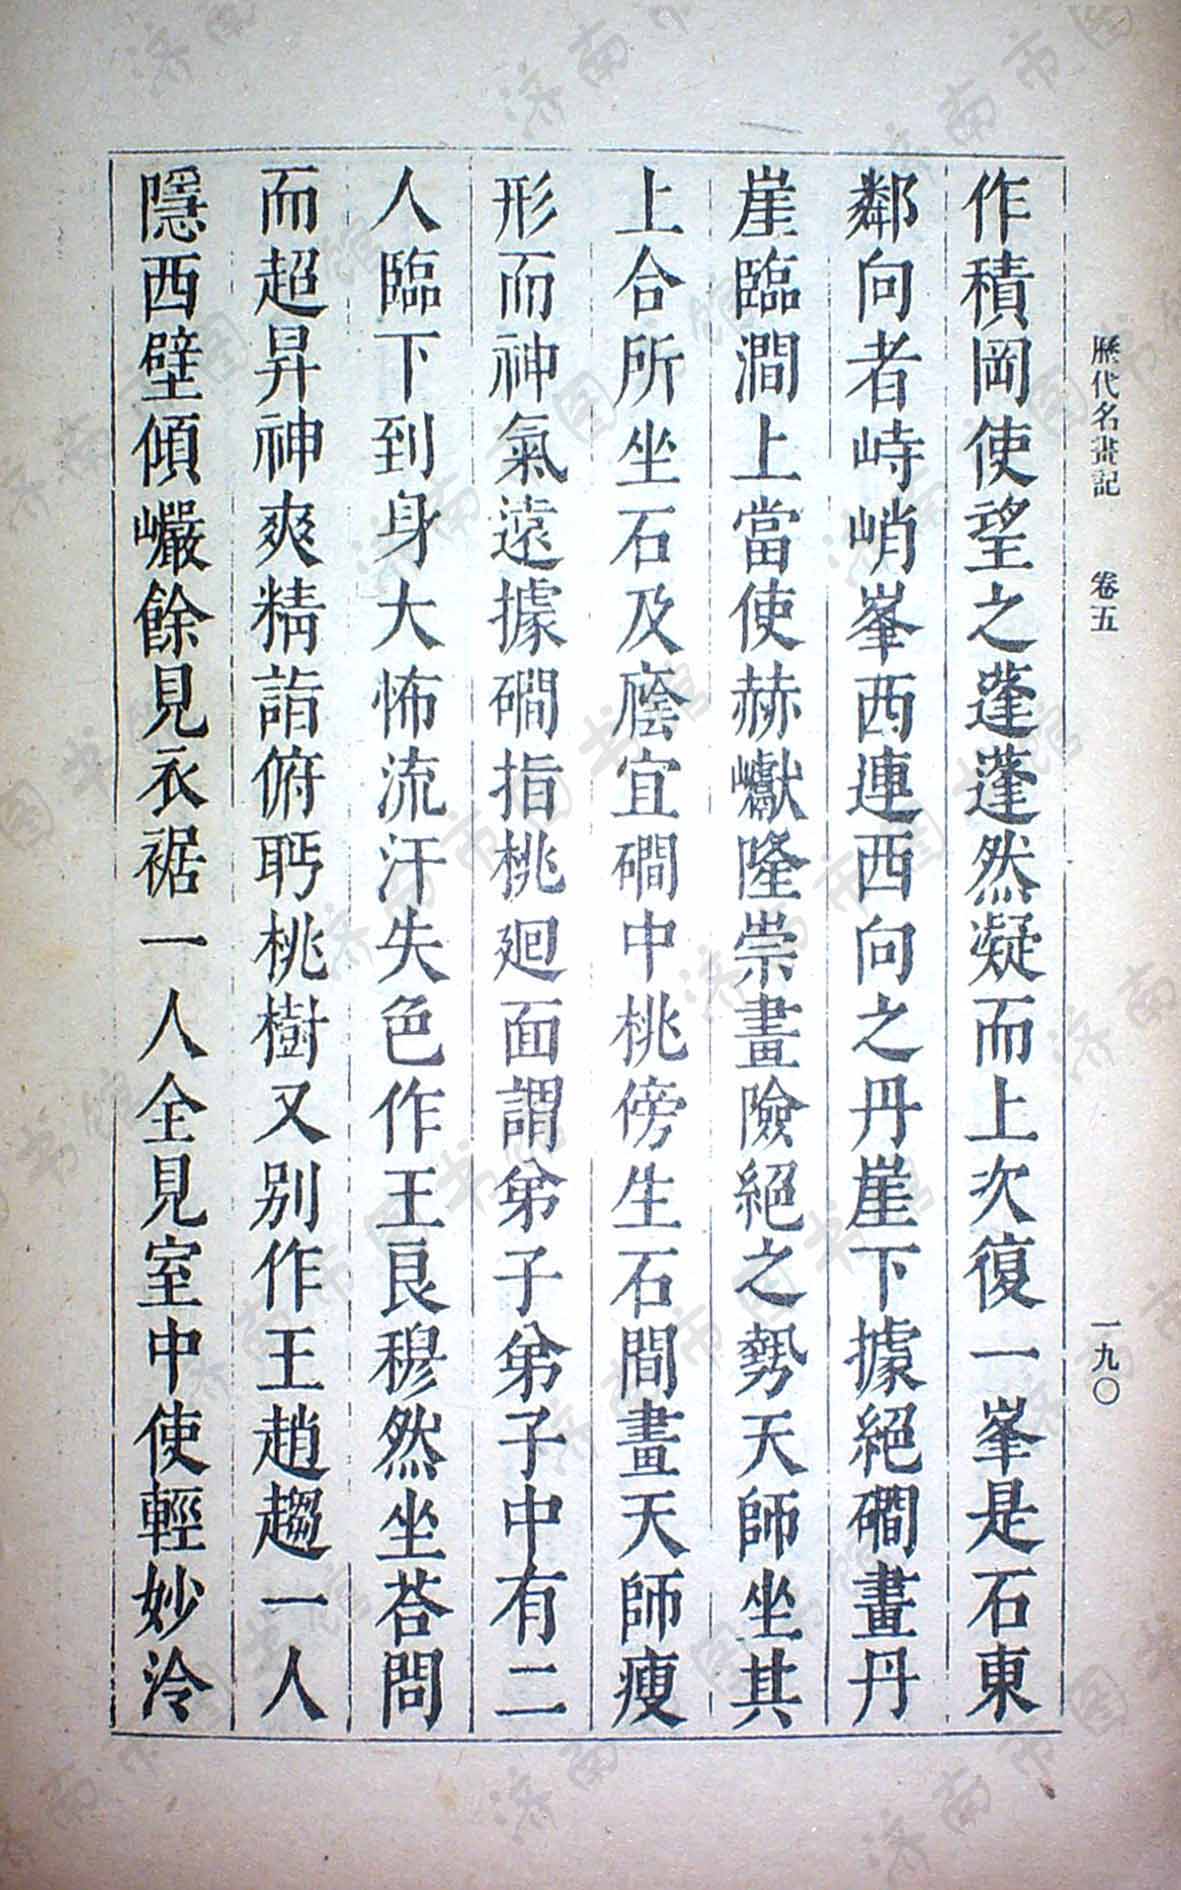 歷代名畫記　卷五　一九〇
作積岡使望之蓬蓬然凝而上次復一峯是石東
鄰向者峙峭峯西連西向之丹崖下據絕磵畫丹
崖臨澗上當使赫巘隆崇畫險絕之勢天師坐其
上合所坐石及廕宜磵中桃傍生石間畫天師瘦
形而神氣遠據磵指桃廻面謂弟子弟子中有二
人臨下到身大怖流汗失色作王良穆然坐荅問
而超昇神爽精詣俯眄桃樹又別作王趙趨一人
隱西壁傾巖餘見衣裾一人全見室中使輕妙泠
济南市图书馆